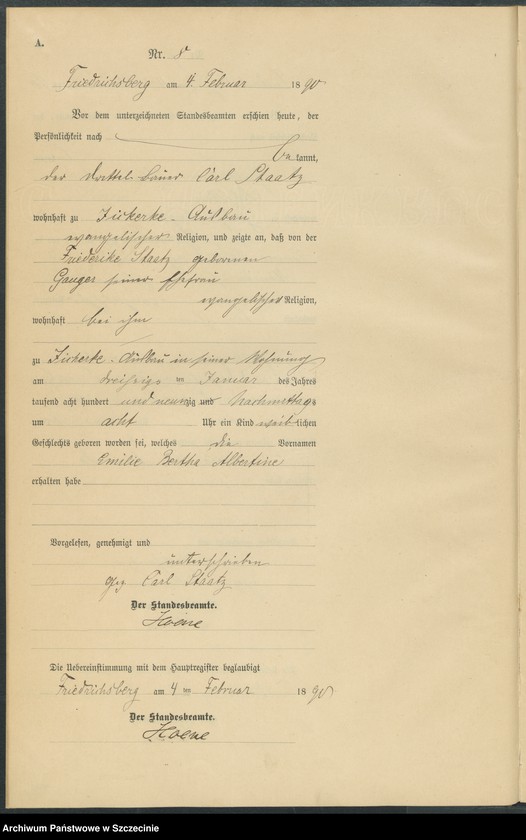 A.
Nr. 8
Friedrichsberg am 4. Februar 1890
Vor dem unterzeichneten Standesbeamten erschien heute, der
Persönlichkeit nach
bekannt,
der Carl Staatz
wohnhaft zu Zickerke-Ausbau
evangelischer Religion, und zeigte an, daß von der
Friederike Staatz geborenen
Gauger seiner Ehefrau
evangelischer Religion,
wohnhaft bei ihm
zu Zickerke-Ausbau in seiner Wohnung
am dreißigsten Januar des Jahres
tausend acht hundert und neunzig und Nachmittags
um acht Uhr ein Kind weiblichen
Geschlechts geboren worden sei, welches die Vornamen
Emilie Bertha Albertine
erhalten habe
Vorgelesen, genehmigt und
unterschrieben
gez Carl Staatz
Der Standesbeamte.
Hoene
Die Uebereinstimmung mit dem Hauptregister beglaubigt
Friedrichsberg am 4ten Februar 1890
Der Standesbeamte.
Hoene
Archiwum Państwowe w Szczecinie